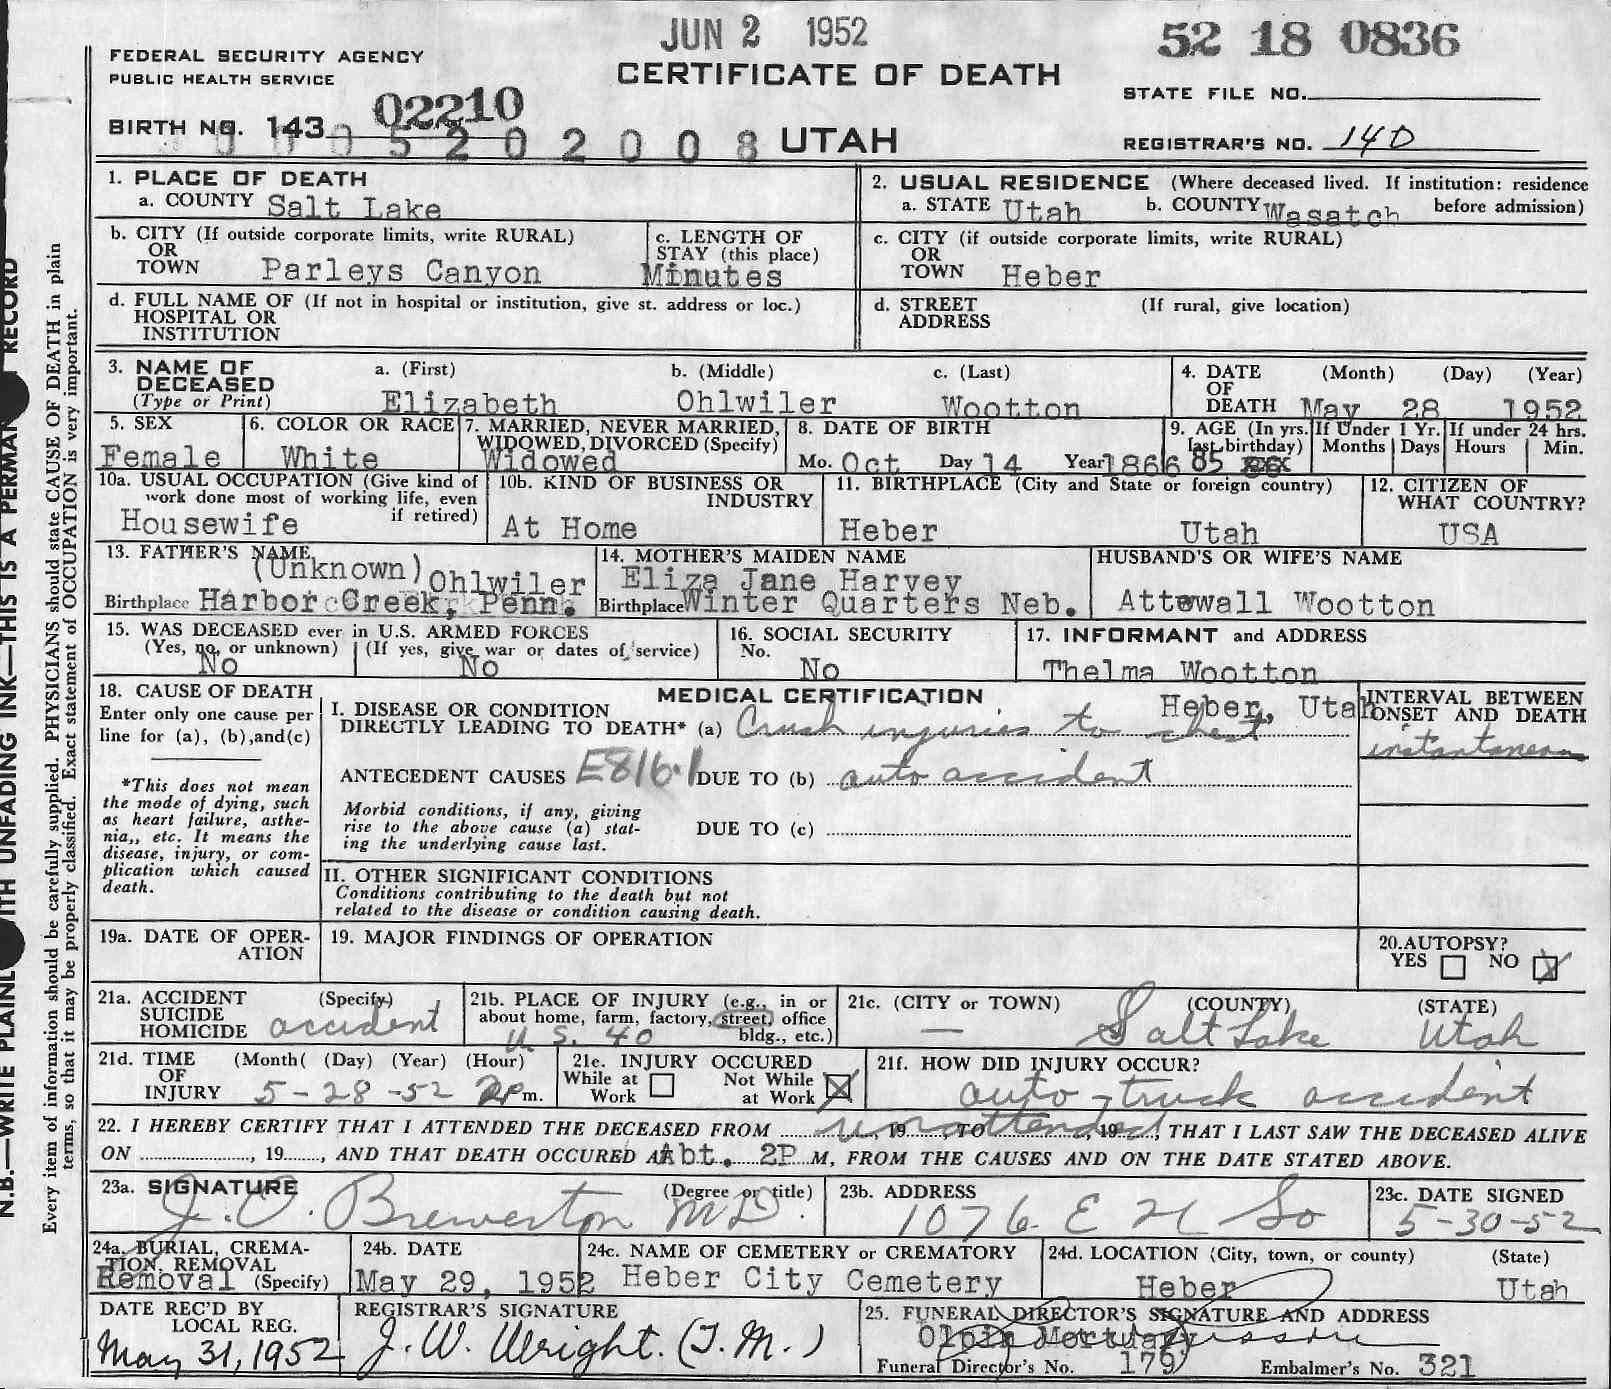 JUN 2 1952
52 18 0836
FEDERAL SECURITY AGENCY
PUBLIC HEALTH SERVICE
CERTIFICATE OF DEATH
STATE FILE NO.
02210
BIRTH NO. 143
0 0 0 5 2 0 2 0 0 8 UTAH
REGISTRAR'S NO. 140
N.B.—WRITE PLAINLY WITH UNFADING INK—THIS IS A PERMAN RECORD
Every item of information should be carefully supplied. PHYSICIANS should state CAUSE OF DEATH in plain
terms, so that it may be properly classified. Exact statement of OCCUPATION is very important.
1. PLACE OF DEATH
a. COUNTY Salt Lake
2. USUAL RESIDENCE (Where deceased lived. If institution: residence
a. STATE Utah b. COUNTY Wasatch before admission)
b. CITY (If outside corporate limits, write RURAL)
OR
TOWN Parleys Canyon
c. LENGTH OF
STAY (this place)
Minutes
c. CITY (if outside corporate limits, write RURAL)
OR
TOWN Heber
d. FULL NAME OF (If not in hospital or institution, give st. address or loc.)
HOSPITAL OR
INSTITUTION
d. STREET (If rural, give location)
ADDRESS
3. NAME OF a. (First) b. (Middle) c. (Last)
DECEASED
(Type or Print) Elizabeth Ohlwiler Wootton
4. DATE (Month) (Day) (Year)
OF
DEATH May 28 1952
5. SEX
Female
6. COLOR OR RACE
White
7. MARRIED, NEVER MARRIED,
WIDOWED, DIVORCED (Specify)
Widowed
8. DATE OF BIRTH
Mo. Oct Day 14 Year 1866
9. AGE (In yrs.
last birthday)
85
If Under 1 Yr.
Months Days
If under 24 hrs.
Hours Min.
10a. USUAL OCCUPATION (Give kind of
work done most of working life, even
if retired)
Housewife
10b. KIND OF BUSINESS OR
INDUSTRY
At Home
11. BIRTHPLACE (City and State or foreign country)
Heber Utah
12. CITIZEN OF
WHAT COUNTRY?
USA
13. FATHER'S NAME
(Unknown) Ohlwiler
Birthplace Harbor Creek, Penn.
14. MOTHER'S MAIDEN NAME
Eliza Jane Harvey
Birthplace Winter Quarters Neb.
HUSBAND'S OR WIFE'S NAME
Attewall Wootton
15. WAS DECEASED ever in U.S. ARMED FORCES
(Yes, no, or unknown) (If yes, give war or dates of service)
No No
16. SOCIAL SECURITY
No.
No
17. INFORMANT and ADDRESS
Thelma Wootton
Heber, Utah
18. CAUSE OF DEATH
Enter only one cause per
line for (a), (b),and(c)
*This does not mean
the mode of dying, such
as heart failure, asthe-
nia,, etc. It means the
disease, injury, or com-
plication which caused
death.
MEDICAL CERTIFICATION
I. DISEASE OR CONDITION
DIRECTLY LEADING TO DEATH* (a) Crush injuries to chest
ANTECEDENT CAUSES E816.1 DUE TO (b) auto accident
Morbid conditions, if any, giving
rise to the above cause (a) stat-
ing the underlying cause last.
DUE TO (c)
II. OTHER SIGNIFICANT CONDITIONS
Conditions contributing to the death but not
related to the disease or condition causing death.
INTERVAL BETWEEN
ONSET AND DEATH
instantaneous
19a. DATE OF OPER-
ATION
19. MAJOR FINDINGS OF OPERATION
20. AUTOPSY?
YES NO X
21a. ACCIDENT (Specify)
SUICIDE
HOMICIDE accident
21b. PLACE OF INJURY (e.g., in or
about home, farm, factory, street, office
bldg., etc.)
U. S. 40
21c. (CITY or TOWN) (COUNTY) (STATE)
— Salt Lake Utah
21d. TIME (Month( (Day) (Year) (Hour)
OF
INJURY 5-28-52 2 P m.
21e. INJURY OCCURED
While at Work Not While at Work X
21f. HOW DID INJURY OCCUR?
auto - truck accident
22. I HEREBY CERTIFY THAT I ATTENDED THE DECEASED FROM unattended, 19, TO, 19, THAT I LAST SAW THE DECEASED ALIVE
ON, 19, AND THAT DEATH OCCURED AT Abt. 2P M, FROM THE CAUSES AND ON THE DATE STATED ABOVE.
23a. SIGNATURE (Degree or title)
J. O. Brewerton MD
23b. ADDRESS
1076 E 21 So
23c. DATE SIGNED
5-30-52
24a. BURIAL, CREMA-
TION, REMOVAL
Removal (Specify)
24b. DATE
May 29, 1952
24c. NAME OF CEMETERY or CREMATORY
Heber City Cemetery
24d. LOCATION (City, town, or county) (State)
Heber Utah
DATE REC'D BY
LOCAL REG.
May 31, 1952
REGISTRAR'S SIGNATURE
J. W. Wright. (T.M.)
25. FUNERAL DIRECTOR'S SIGNATURE AND ADDRESS
Olpin Mortuary
Funeral Director's No. 179 Embalmer's No. 321